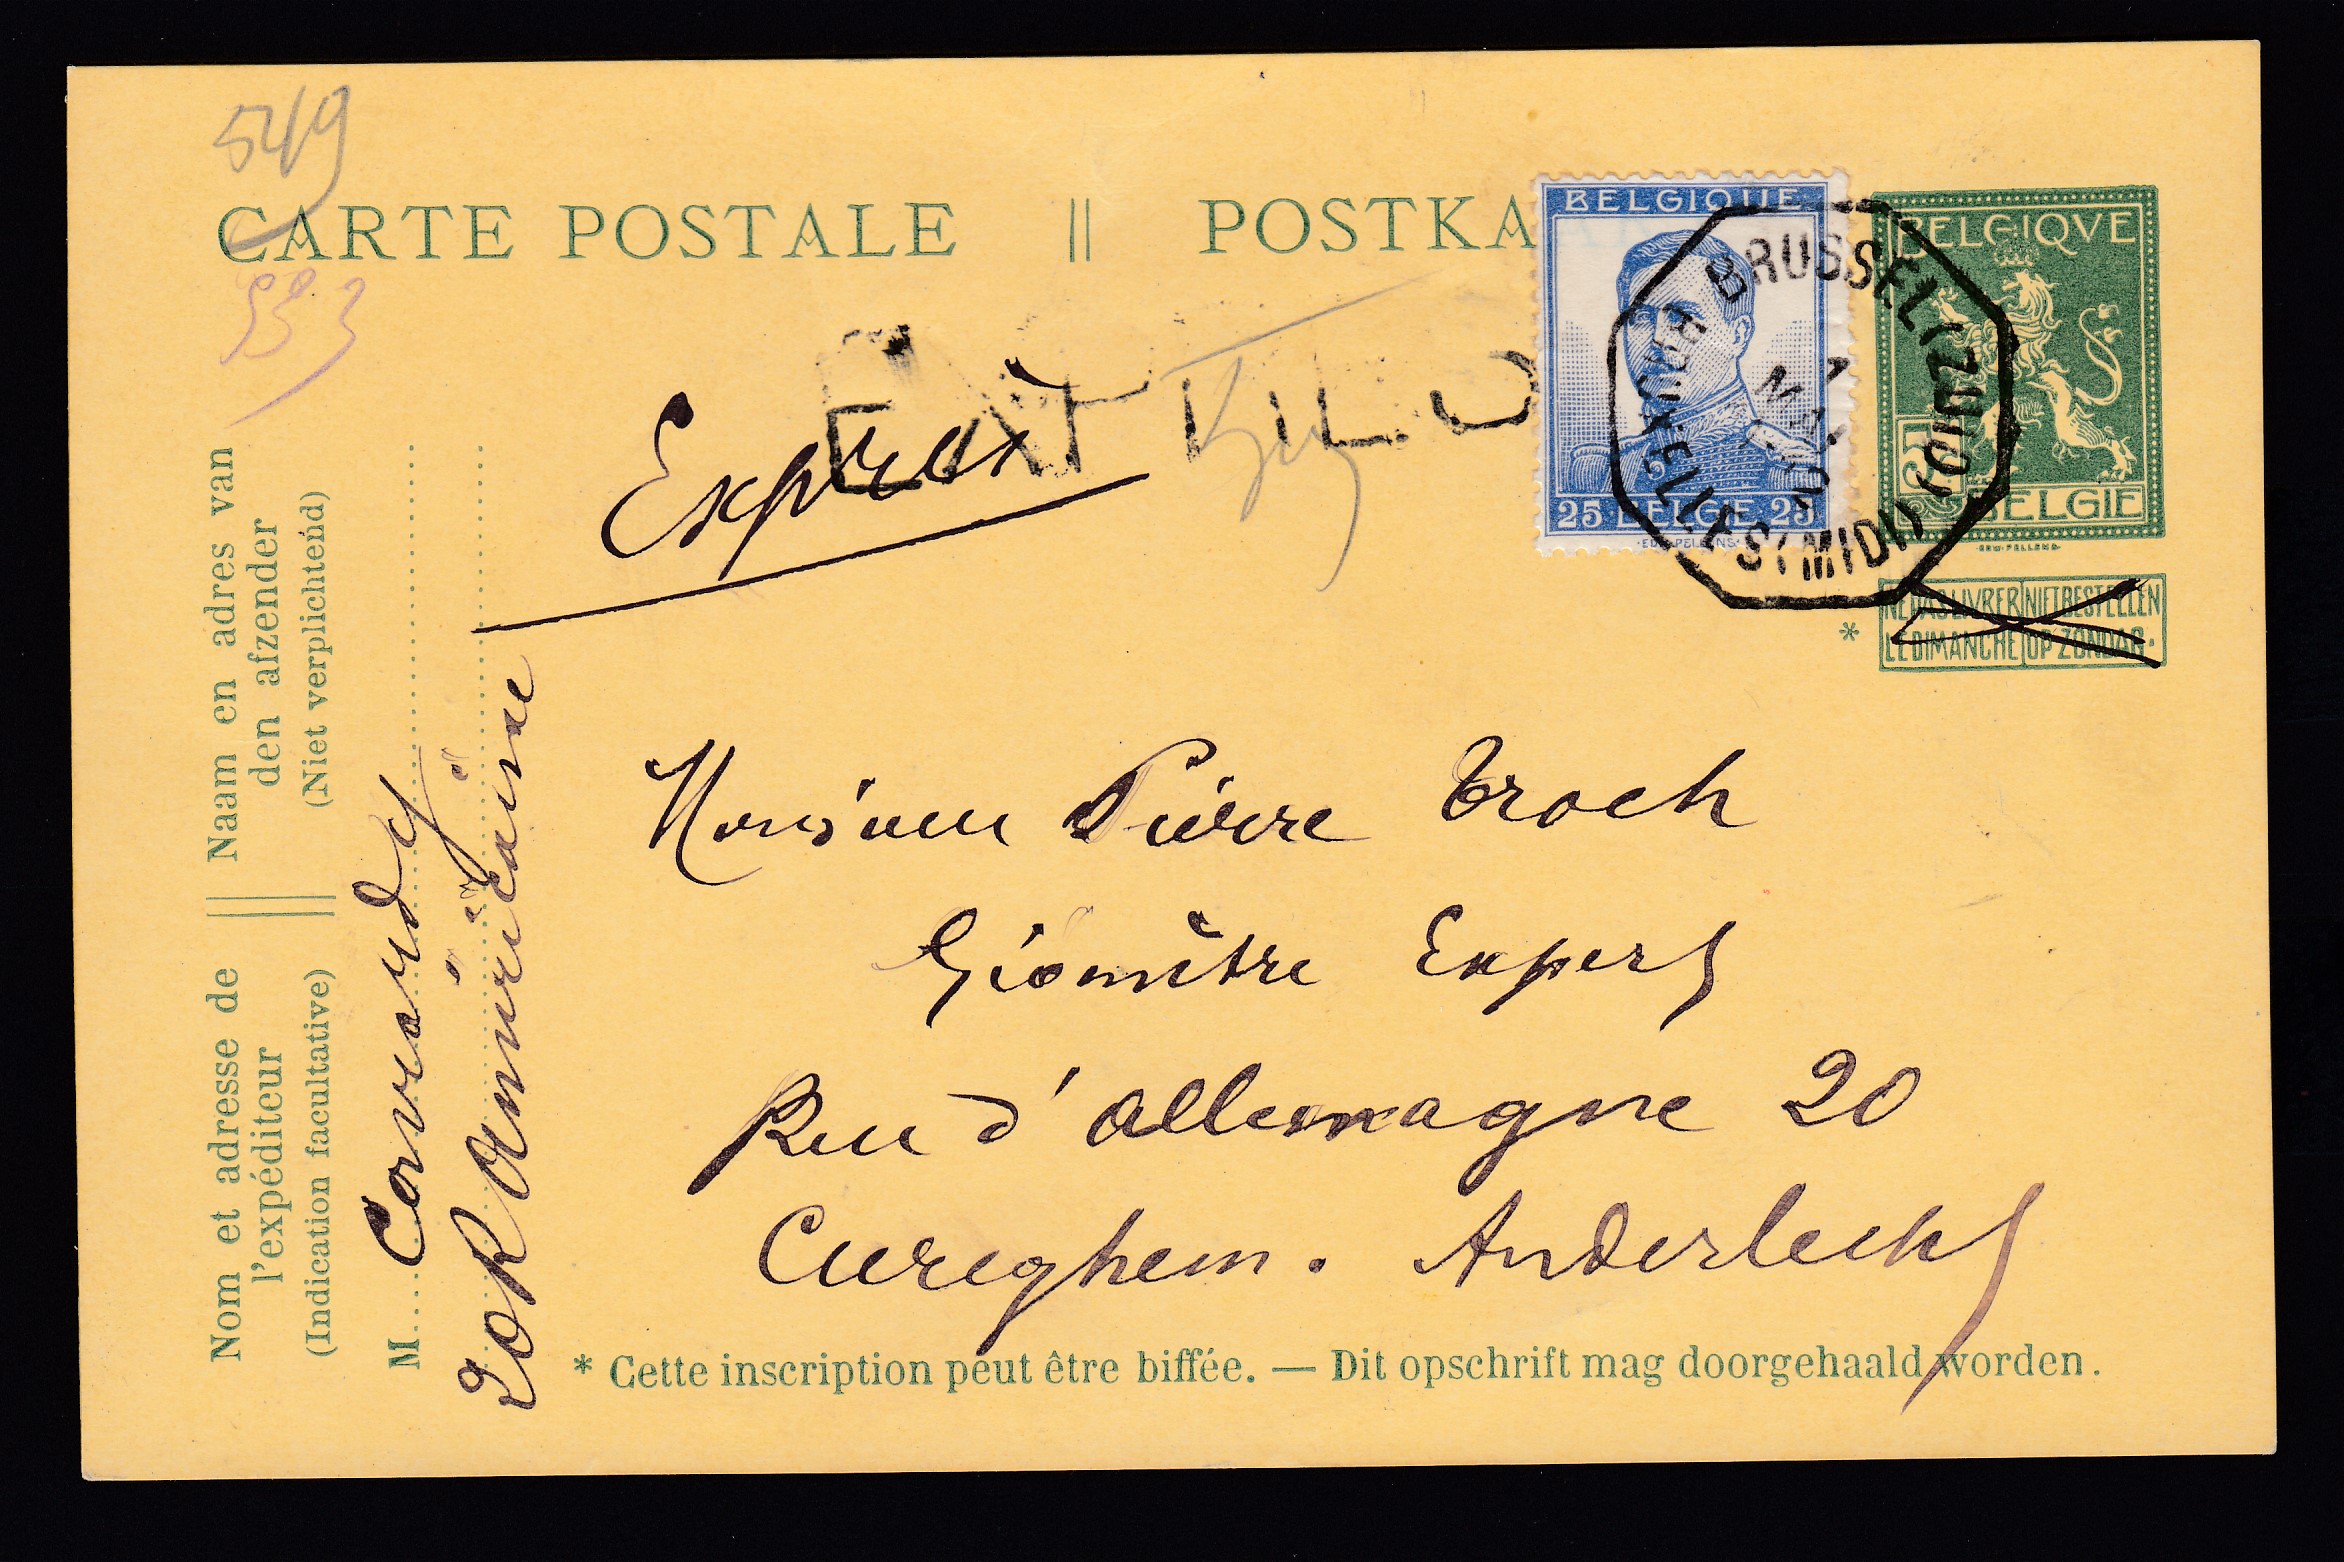 549
CARTE POSTALE || POSTKA
533
BELGIQUE
25 BELGIE 25
BELGIQVE
5
BELGIE
BRUSSEL (ZUID)
1 MAI
BRUXELLES (MIDI)
NE PAS LIVRER LE DIMANCHE
NIET BESTELLEN OP ZONDAG.
*
Exprès
Monsieur Pierre Troch
Géomètre Expert
Rue d'Allemagne 20
Cureghem. Anderlecht
* Cette inscription peut être biffée. — Dit opschrift mag doorgehaald worden.
Nom et adresse de || Naam en adres van
l'expéditeur den afzender
(Indication facultative) || (Niet verplichtend)
M
20 R Américaine